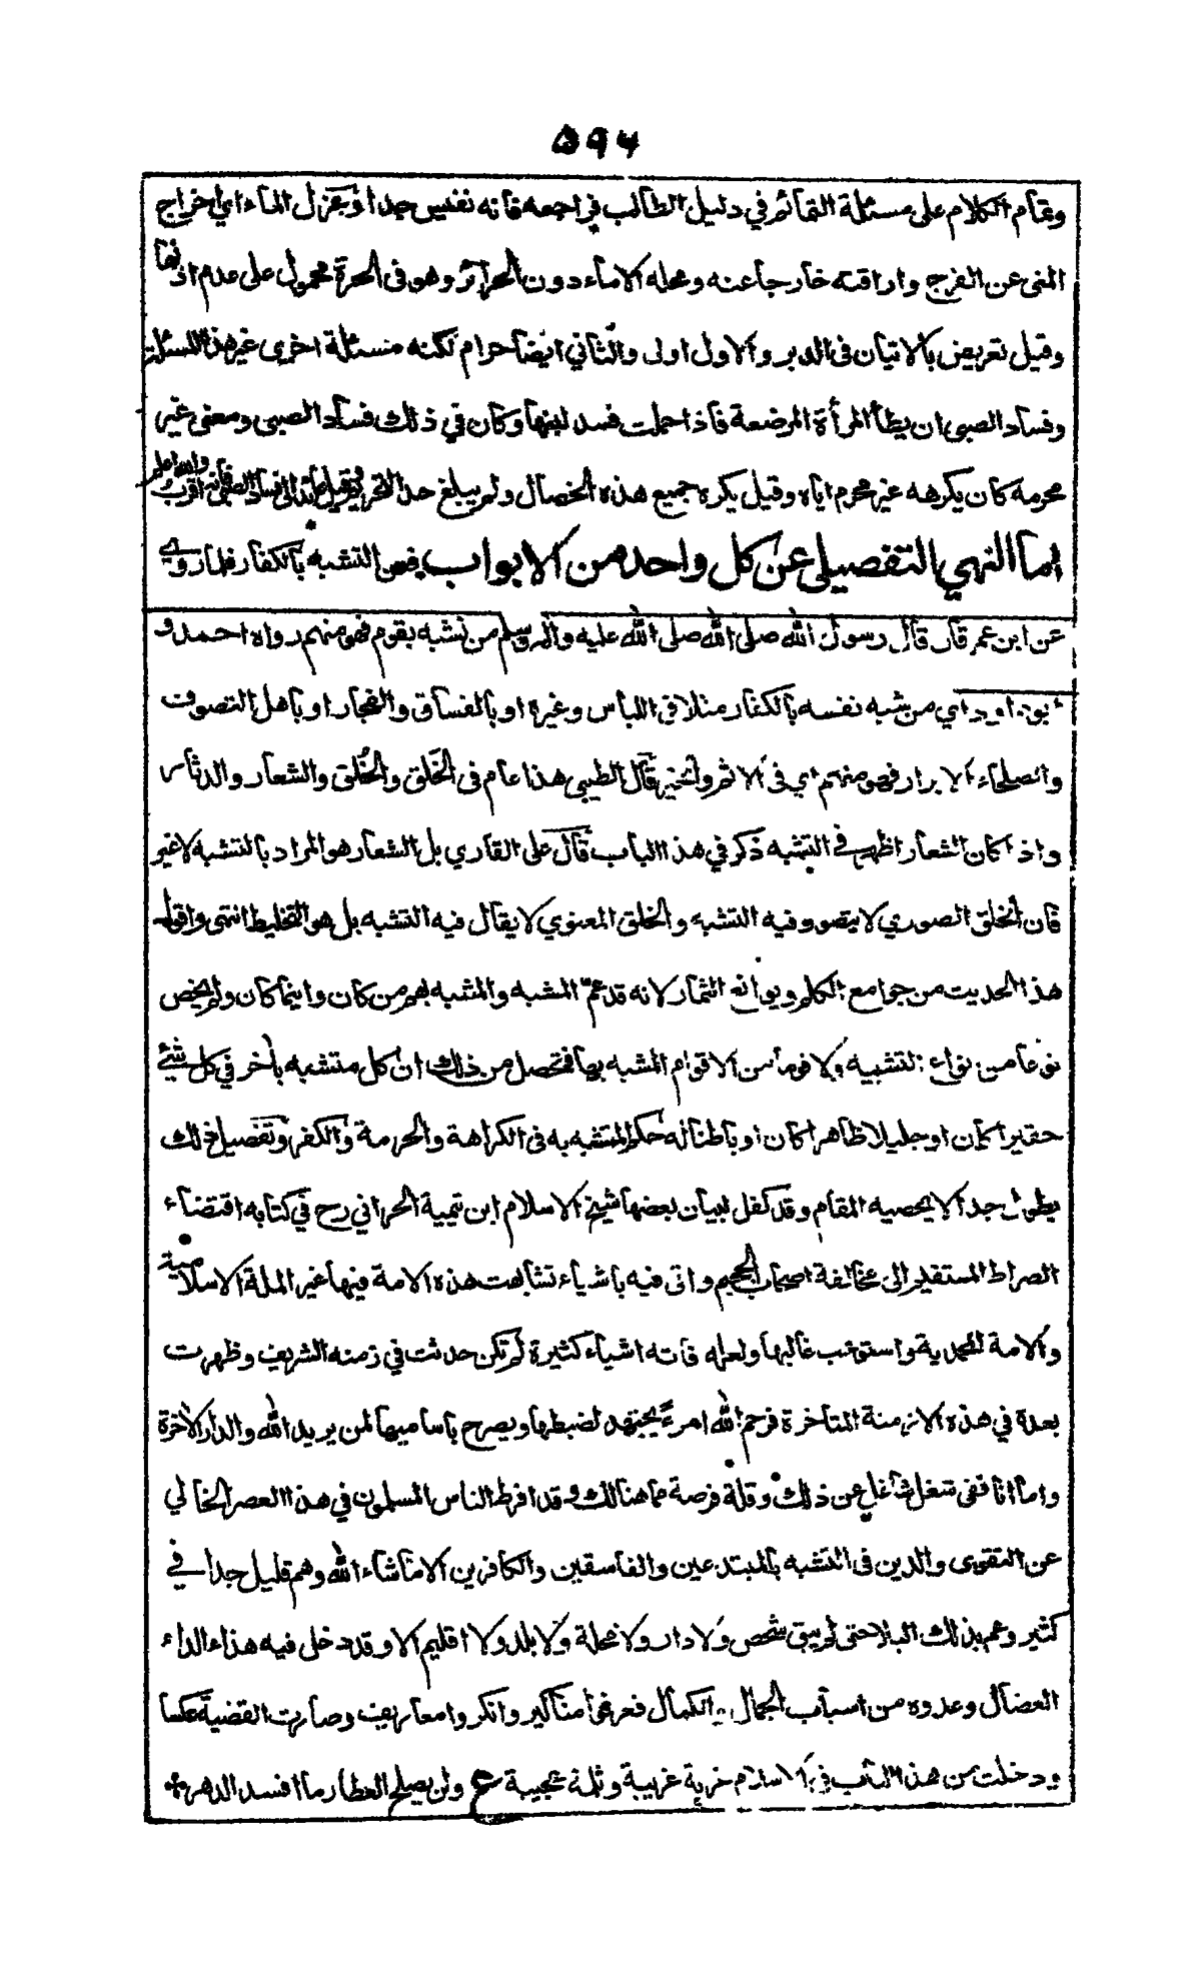 ٥٩٦
وتمام الكلام على مسئلة التمائم في دليل الطالب فراجعه فانه نفيس جدا وبعزل الماء اي اخراج
المنى عن الفرج واراقته خارجا عنه ومحله الاماء دون الحرائر وهو فى الحرة محمول على عدم اذنها
وقيل تعريض بالاتيان فى الدبر والاول اولى والثاني ايضا حرام لكنه مسئلة اخرى غير هذا المسئلة
وفساد الصبى ان يطأ المرأة المرضعة فاذا حملت فسد لبنها وكان في ذلك فساد الصبى ومعنى غير
محرمه كان يكرهه غير محرم اياه وقيل يكره جميع هذه الخصال ولم يبلغ حد التحريم فانه اقرب والله اعلم
اما النهي التفصيلى عن كل واحد من الابواب فعن التشبه بالكفار فلما روي
عن ابن عمر قال قال رسول الله صلى الله صلى الله عليه واله وسلم من تشبه بقوم فهو منهم رواه احمد و
ابو داود اي من شبه نفسه بالكفار مثلا فى اللباس وغيره او بالفساق والفجار او باهل التصوف
والصلحاء الابرار فهو منهم اي فى الاثم والخير قال الطيبى هذا عام فى الخلق والخلق والشعار والدثار
واذا كان الشعار اظهر في التشبه ذكر في هذا الباب قال على القاري بل الشعار هو المراد بالتشبه لا غير
فان الخلق الصوري لا يتصور فيه التشبه والخلق المعنوي لا يقال فيه التشبه بل هو التخلق انتهى واقول
هذا الحديث من جوامع الكلم ويوانع الثمار لانه قد عم المشبه والمشبه بهم من كان واينما كان ولم يخص
نوعا من انواع التشبيه ولا قوما من الاقوام المشبه بها فتحصل من ذلك ان كل متشبه باخر في كل شيئ
حقيرا كان او جليلا ظاهرا كان او باطنا له حكم المتشبه به فى الكراهة والحرمة والكفر وتفصيل ذلك
يطول جدا لا يحصيه المقام وقد كفل لبيان بعضها شيخ الاسلام ابن تيمية الحراني رح في كتابه اقتضاء
الصراط المستقيم الى مخالفة اصحاب الجحيم واتى فيه باشياء تشابهت هذه الامة فيها غير الملة الاسلامية
والامة المحمدية واستوعب غالبها ولعله فاته اشياء كثيرة لم تكن حدثت في زمنه الشريف وظهرت
بعدة في هذه الازمنة المتاخرة فرحم الله امرءً يجتهد لضبطها ويصرح باساميها لمن يريد الله والدار الاخرة
واما انا ففى شغل شاغل عن ذلك وقلة فرصة مما هنالك وقد افرط الناس المسلمون في هذا العصر الخالي
عن التقوى والدين فى التشبه بالمبتدعين والفاسقين والكافرين الا ماشاء الله وهم قليل جدا في
كثير وعم بذلك البلاء حتى لم يبق شخص ولا دار ولا محلة ولا بلد ولا اقليم الا وقد دخل فيه هذا الداء
العضال وعدوه من اسباب الجمال والكمال فعرفوا مناكير وانكروا معاريف وصارت القضية عكسا
ودخلت من هذا الباب في الاسلام خربة غريبة وثلمة عجيبة ع ولن يصلح العطار ما افسد الدهر